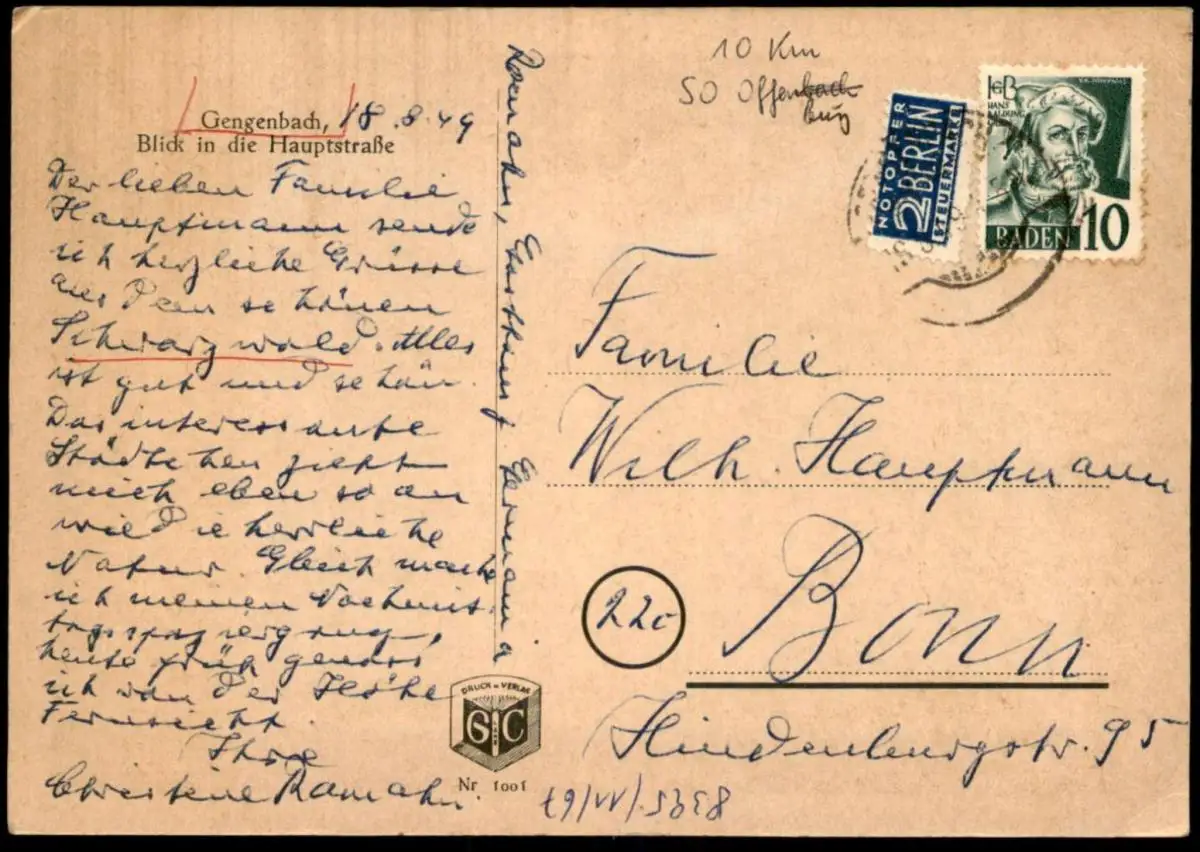 10 Km
SO Offenbach
burg
Gengenbach, 18.8.49
Blick in die Hauptstraße
Der lieben Familie
Hauptmann sende
ich herzliche Grüsse
aus dem schönen
Schwarzwald. Alles
ist gut und schön.
Das interessante
Städtchen zieht
mich eben so an
wie die herrliche
Natur. Gleich mache
ich meinen Nachmit
tagsspaziergang,
heute früh genoss
ich von der Höhe
Fernsicht.
Ihre
Christine Ramahn.
Germania
NOTOPFER
2 BERLIN
STEUERMARKE
HGB
HANS
BALDUNG
BADEN 10
Familie
Wilh. Hauptmann
22c
Bonn
Hindenburgstr. 95
DRUCK u. VERLAG
G C
LAHR
Nr 1001
8395/VV/67